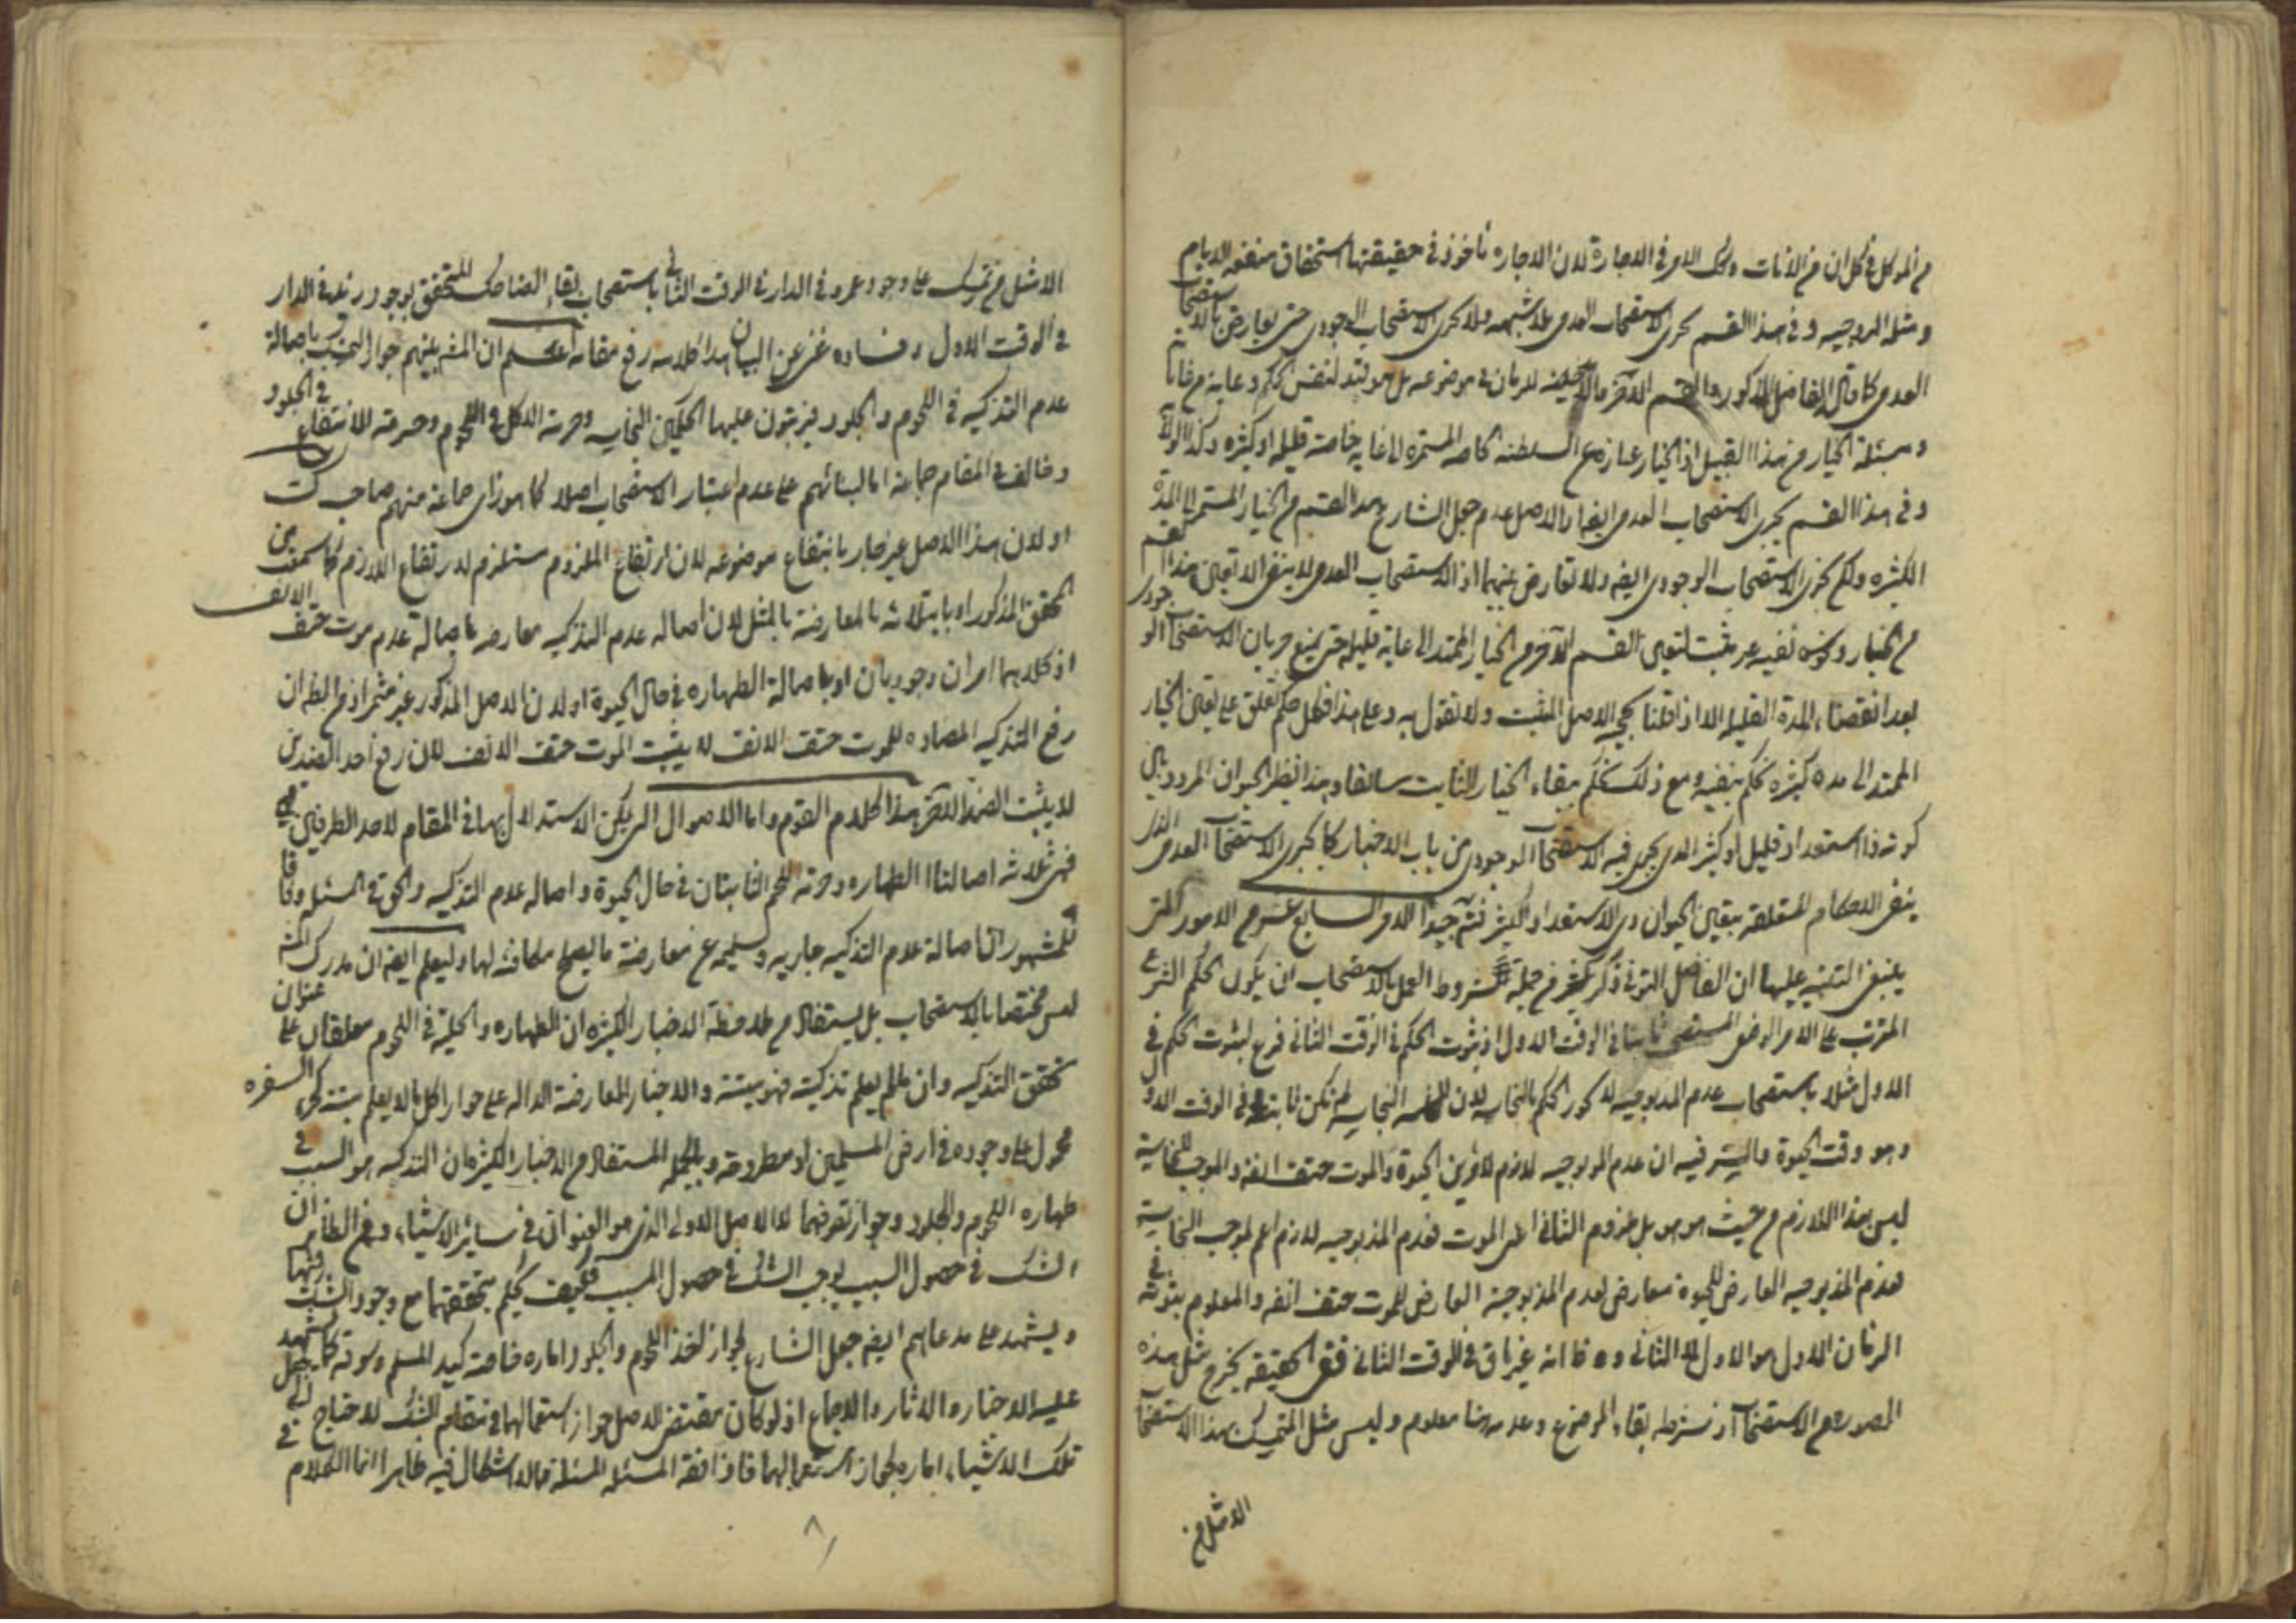 من الموكل في كل ان من الانات وكك الامر في الاجارة لان الاجاره ماخوذ في حقيقتها استحقاق منفعه الايام
ومثله الزوجيه وفي هذا القسم يجرى الاستصحاب العدمى بلا شبهه ولا يجرى الاستصحاب الوجودى حتى يعارض بالاستصحاب
العدمى كما قال الفاضل المذكور والقسم الاخر مالا مدخليته للزمان في موضوعه بل هو قيد لنفس الحكم وغاية من غاياته
ومسئلة الخيار من هذا القبيل اذ الخيار عبارة عن السلطنه الخاصه المستمره الى غايه خاصة قليله او كثيره
وفي هذا القسم يجرى الاستصحاب العدمى ايضا اذ الاصل عدم جعل الشارع هذا القسم من الخيار المستمر الى المدة
الكثيره ولكن يجرى الاستصحاب الوجودى ايضه ولا تعارض بينهما اذ الاستصحاب العدمى لا ينفى الا تعيين هذا القسم
من الخيار وكونه نفيه غير مثبت لتعين القسم الآخر من الخيار الممتد الى غاية قليله حتى يمنع جريان الاستصحاب الوجودى
بعد انقضاء المدة القليله الا اذا قلنا بحجيه الاصل المثبت ولا نقول به وعلى هذا فكل حكم تعلق على تعين الخيار
الممتد الى مدة كثيره نحكم بنفيه ومع ذلك نحكم ببقاء الخيار الثابت سابقا وهذا نظير الحيوان المردد بين
كونه ذا استعداد قليل او كثير الذى يجرى فيه الاستصحاب الوجودى من باب الاخبار كما يجرى الاستصحاب العدمى الذى
ينفى الاحكام المتعلقه بتعين الحيوان ذى الاستعداد الكثير فتم جيدا الامر السابع عشر من الامور التى
ينبغى التنبيه عليها ان الفاضل التونى ذكر من جملة شروط العمل بالاستصحاب ان يكون الحكم الشرعى
المترتب على الامر الوضعى المستصحب ثابتا في الوقت الاول اذ ثبوت الحكم في الوقت الثانى فرع لثبوت الحكم في
الاول مثلا باستصحاب عدم المذبوحيه لا يجوز الحكم بالنجاسه لان النجاسه لم تكن ثابتة في الوقت الاول
وهو وقت الحيوة والسر فيه ان عدم المذبوحيه لازم لامرين الحيوة والموت حتف انفه والموجب للنجاسة
ليس هذا اللازم من حيث هو هو بل ملزومه الثانى اعنى الموت فعدم المذبوحيه لازم اعم لموجب النجاسة
فعدم المذبوحيه العارض للحيوة معارض لعدم المذبوحية العارض للموت حتف انفه والمعلوم ثبوته في
الزمان الاول هو الاول لا الثانى وظا انه غير باق في الوقت الثانى ففى الحقيقه يخرج مثل هذه
الصوره من الاستصحاب اذ شرطه بقاء الموضوع وعدمه هنا معلوم وليس مثل المتمسك بهذا الاستصحاب
الا مثل من
الا مثل من تمسك على وجود عمرو في الدار في الوقت الثانى باستصحاب بقاء الضاحك المتحقق بوجود زيد في الدار
في الوقت الاول وفساده غنى عن البيان هذا كلامه رفع مقامه اعلم ان المش بينهم جواز التمسك باصالة
عدم التذكيه في اللحوم والجلود فيرتبون عليها الحكمين النجاسه وحرمة الاكل في اللحوم وحرمة الانتفاع في الجلود
وخالف في المقام جماعة اما لبنائهم على عدم اعتبار الاستصحاب اصلا كما هو راى جماعة منهم صاحب ك
او لان هذا الاصل غير جار بانتفاع موضوعه لان ارتفاع الملزوم مستلزم لارتفاع اللازم كما سمعت من
المحقق المذكور او بابتلائه بالمعارضة بالمثل لان اصاله عدم التذكيه معارضه باصالة عدم موت حتف الانف
اذ كلاهما امران وجوديان او باصالة الطهاره في حال الحيوة او لان الاصل المذكور غير مثمر اذ من الظ ان
رفع التذكيه المضاده للموت حتف الانف لا يثبت الموت حتف الانف لان رفع احد الضدين
لا يثبت الضد الاخر هذا كلام القوم واما الاصول التى يمكن الاستدلال بها في المقام لاحد الطرفين
فهى ثلاثه اصالتا الطهاره وحرمة اللحم الثابتان في حال الحيوة واصاله عدم التذكيه والحق في المسئله وفاقا
للمشهور ان اصالة عدم التذكيه جاريه وسليمه عن معارضة ما يصلح مكافئه لها وليعلم ايضه ان مدرك المش
ليس مختصا بالاستصحاب بل يستفاد من ملاحظة الاخبار الكثيره ان الطهاره والحلية في اللحوم معلقان على عنوان
تحقق التذكيه وان مالم يعلم تذكيته فهو ميتة والاخبار المعارضة الداله على جواز اكل ما لا يعلم ميتة كخبر السفره
محمول على وجوده في ارض المسلمين او مطروحه وبالجمله المستفاد من الاخبار الكثيره ان التذكيه هو السبب في
طهاره اللحوم والجلود وجواز تصرفهما لا الاصل الاولى الذى هو العنوان في سائر الاشياء ومن الظاهر ان
الشك في حصول السبب يوجب الشك في حصول المسبب فكيف يحكم بتحققهما مع وجود الشك فيهما
ويشهد على مدعاهم ايضه جعل الشارع لجواز اخذ اللحوم والجلود اماره خاصة كيد المسلم وسوقه كما يشهد
عليه الاخبار والاثار والاجماع اذ لو كان مقتضى الاصل جواز استعمالها في مقام الشك لا حتاج الى جعل
تلك الاشياء اماره لجواز استعمالها فاذا فقه المسئله المسئلة مما لا اشكال فيه ظاهرا انما الكلام في
٨